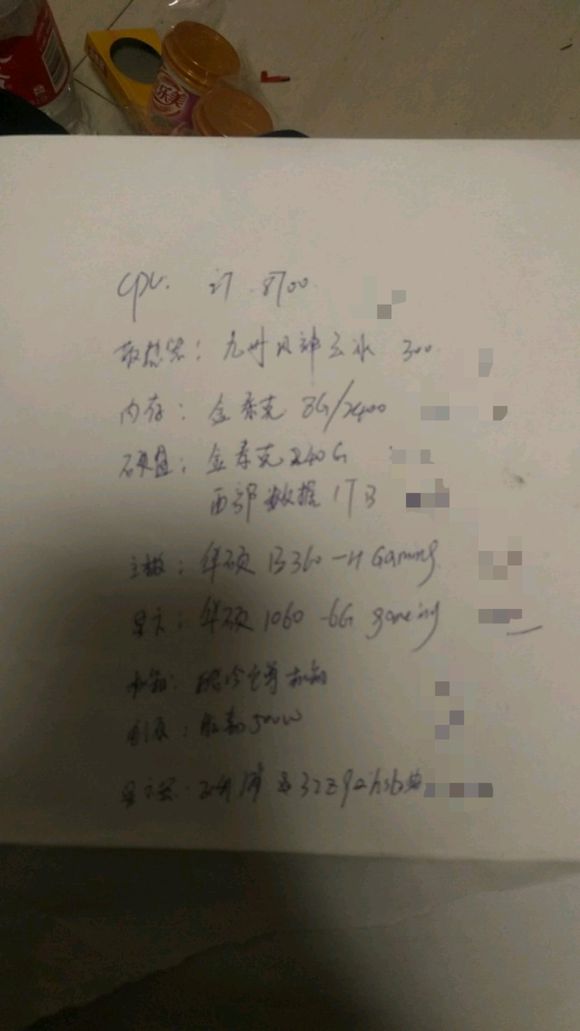 乐美
CPU. i7 8700
散热器：九州风神玄冰 300
内存：金泰克 8G/2400
硬盘：金泰克 240G
西部数据 1TB
主板：华硕 B360-H Gaming
显卡：华硕 1060-6G gaming
机箱：
电源：500W
显示器：